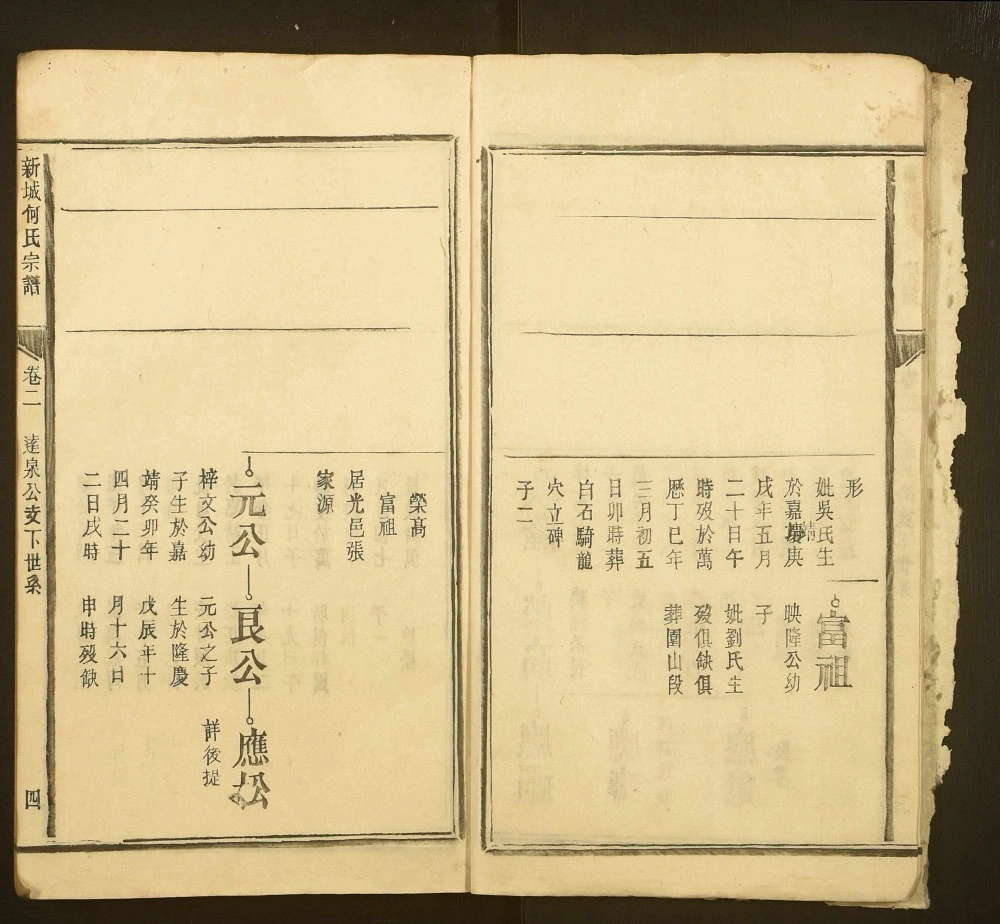 形
妣吳氏生
於嘉慶庚
靖
戌年五月
二十日午
時歿於萬
歷丁巳年
三月初五
日卯時葬
白石騎龍
穴立碑
子二
富祖
映隆公幼
子
妣劉氏生
歿俱缺俱
葬圍山段
榮高
富祖
居光邑張
家源
元公
梓文公幼
子生於嘉
靖癸卯年
四月二十
二日戌時
良公
元公之子
生於隆慶
戊辰年十
月十六日
申時歿缺
應松
詳後提
新城何氏宗譜
卷二
達泉公支下世系
四